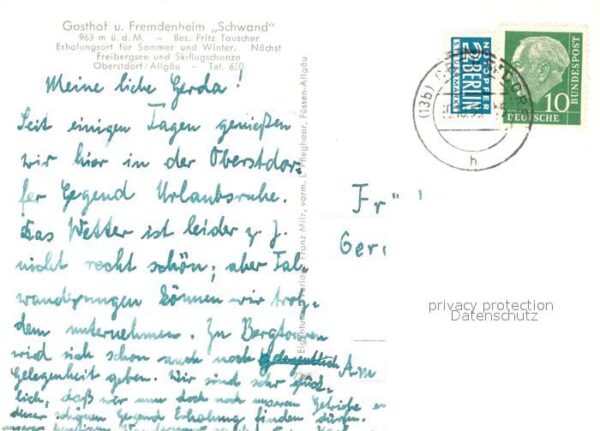 Gasthof u. Fremdenheim „Schwand"
963 m ü. d. M. – Bes. Fritz Tauscher
Erholungsort für Sommer und Winter. Nächst
Freibergsee und Skiflugschanze
Oberstdorf/Allgäu – Tel. 620
Meine liebe Gerda!
Seit einigen Tagen genießen
wir hier in der Oberstdor-
fer Gegend Urlaubsruhe.
Das Wetter ist leider z. Z.
nicht recht schön, aber Tal-
wanderungen können wir trotz-
dem unternehmen. Zu Bergtouren
wird sich schon auch noch
Gelegenheit geben. Wir sind sehr glück-
lich, daß wir nun doch noch unserem Getriebe in
dieser schönen Gegend Erholung finden dürfen.
Eigentum u. Verlag: Franz Milz, vorm. L. Pfleghaar, Füssen-Allgäu
NOTOPFER
2 BERLIN
STEUERMARKE
DEUTSCHE
BUNDESPOST
10
(13b)
h
Fr
Ger
Am
privacy protection
Datenschutz